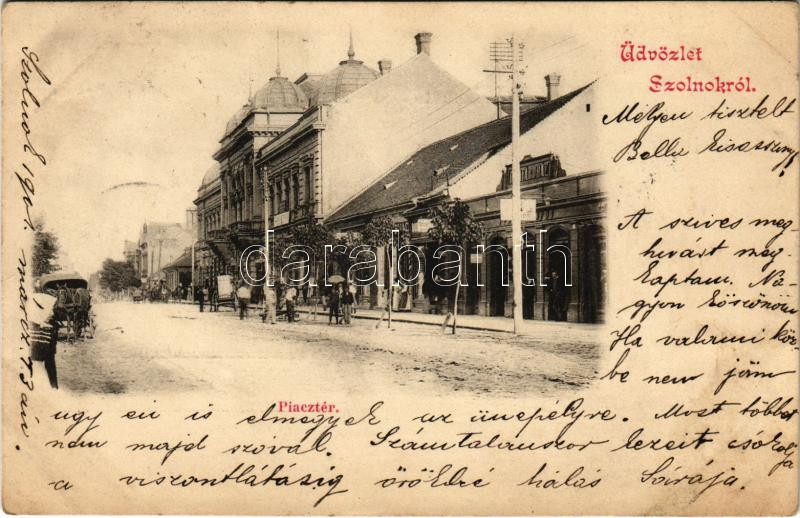 Üdvözlet
Szolnokról.
Szolnok 1901. marcz. 13 án
Mélyen tisztelt
Bella Kisasszony!
A szives meg-
hivást meg-
kaptam. Na-
gyon köszönöm
Ha valami köz-
be nem jöm
ugy én is elmegyek az ünepélyre. Most többet
nem majd szóval. Számtalanszor kezeit csókolja
a viszontlátásig örökké hálás
Piacztér.
darabanth